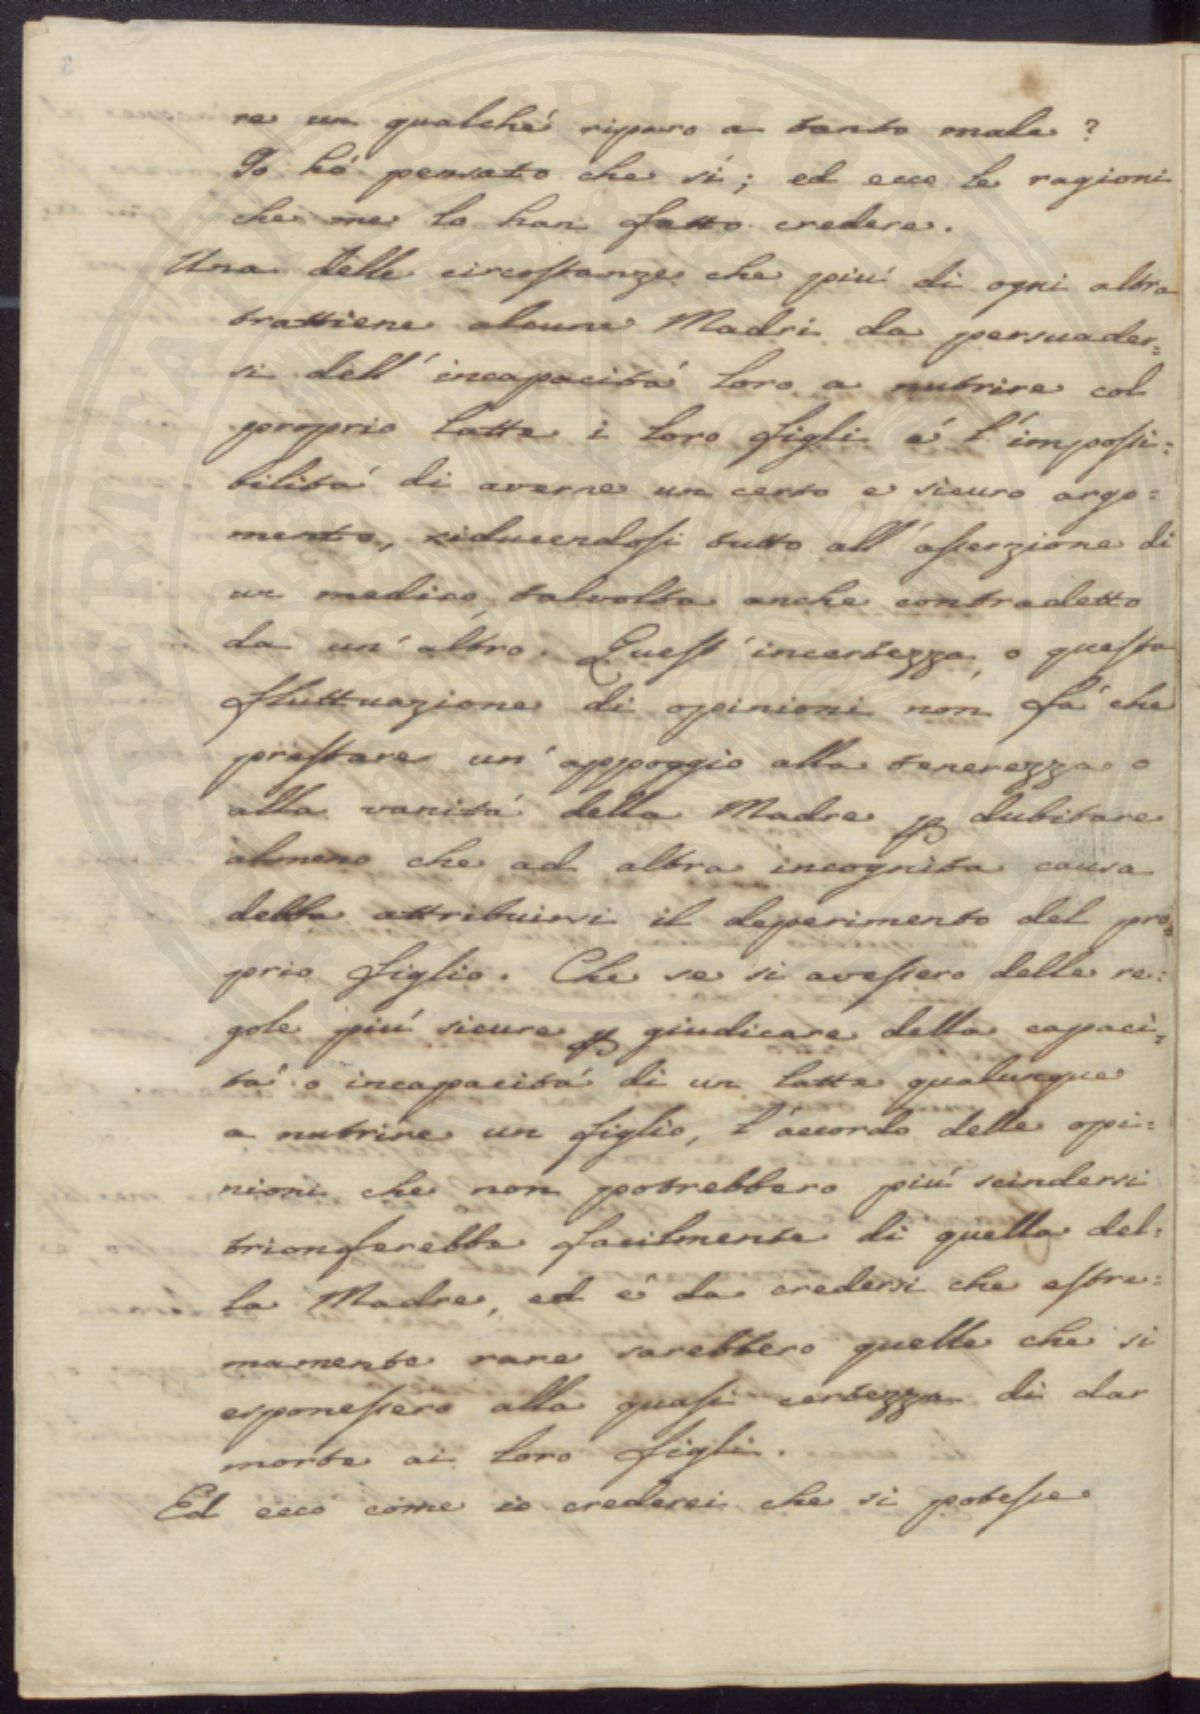 re un qualché riparo a tanto male ?
Io hó pensato che sí ; ed ecco le ragioni
che me lo han fatto credere .
Una delle circostanze che piú di ogni altra
trattiene alcune Madri da persuader=
si dell' incapacitá loro a nutrire col
proprio latte i loro figli é l'impossi=
bilitá di averne un certo e sicuro argo=
mento, riducendosi tutto all'asserzione di
un medico talvolta anche contradetto
da un'altro . Quest'incertezza, o questa
fluttuazione di opinioni non fá che
prestare un'appoggio alla tenerezza o
alla vanitá della Madre p dubitare
almeno che ad altra incognita causa
debba attribuirsi il deperimento del pro=
prio figlio . Che se si avessero delle re=
gole piú sicure p giudicare della capaci=
tá o incapacitá di un latte qualunque
a nutrire un figlio, l'accordo delle opi=
nioni che non potrebbero piú scindersi
trionferebbe facilmente di quella del=
la Madre, ed é da credersi che estre=
mamente rare sarebbero quelle che si
esponessero alla quasi certezza di dar
morte ai loro figli .
Ed ecco come io crederei che si potesse